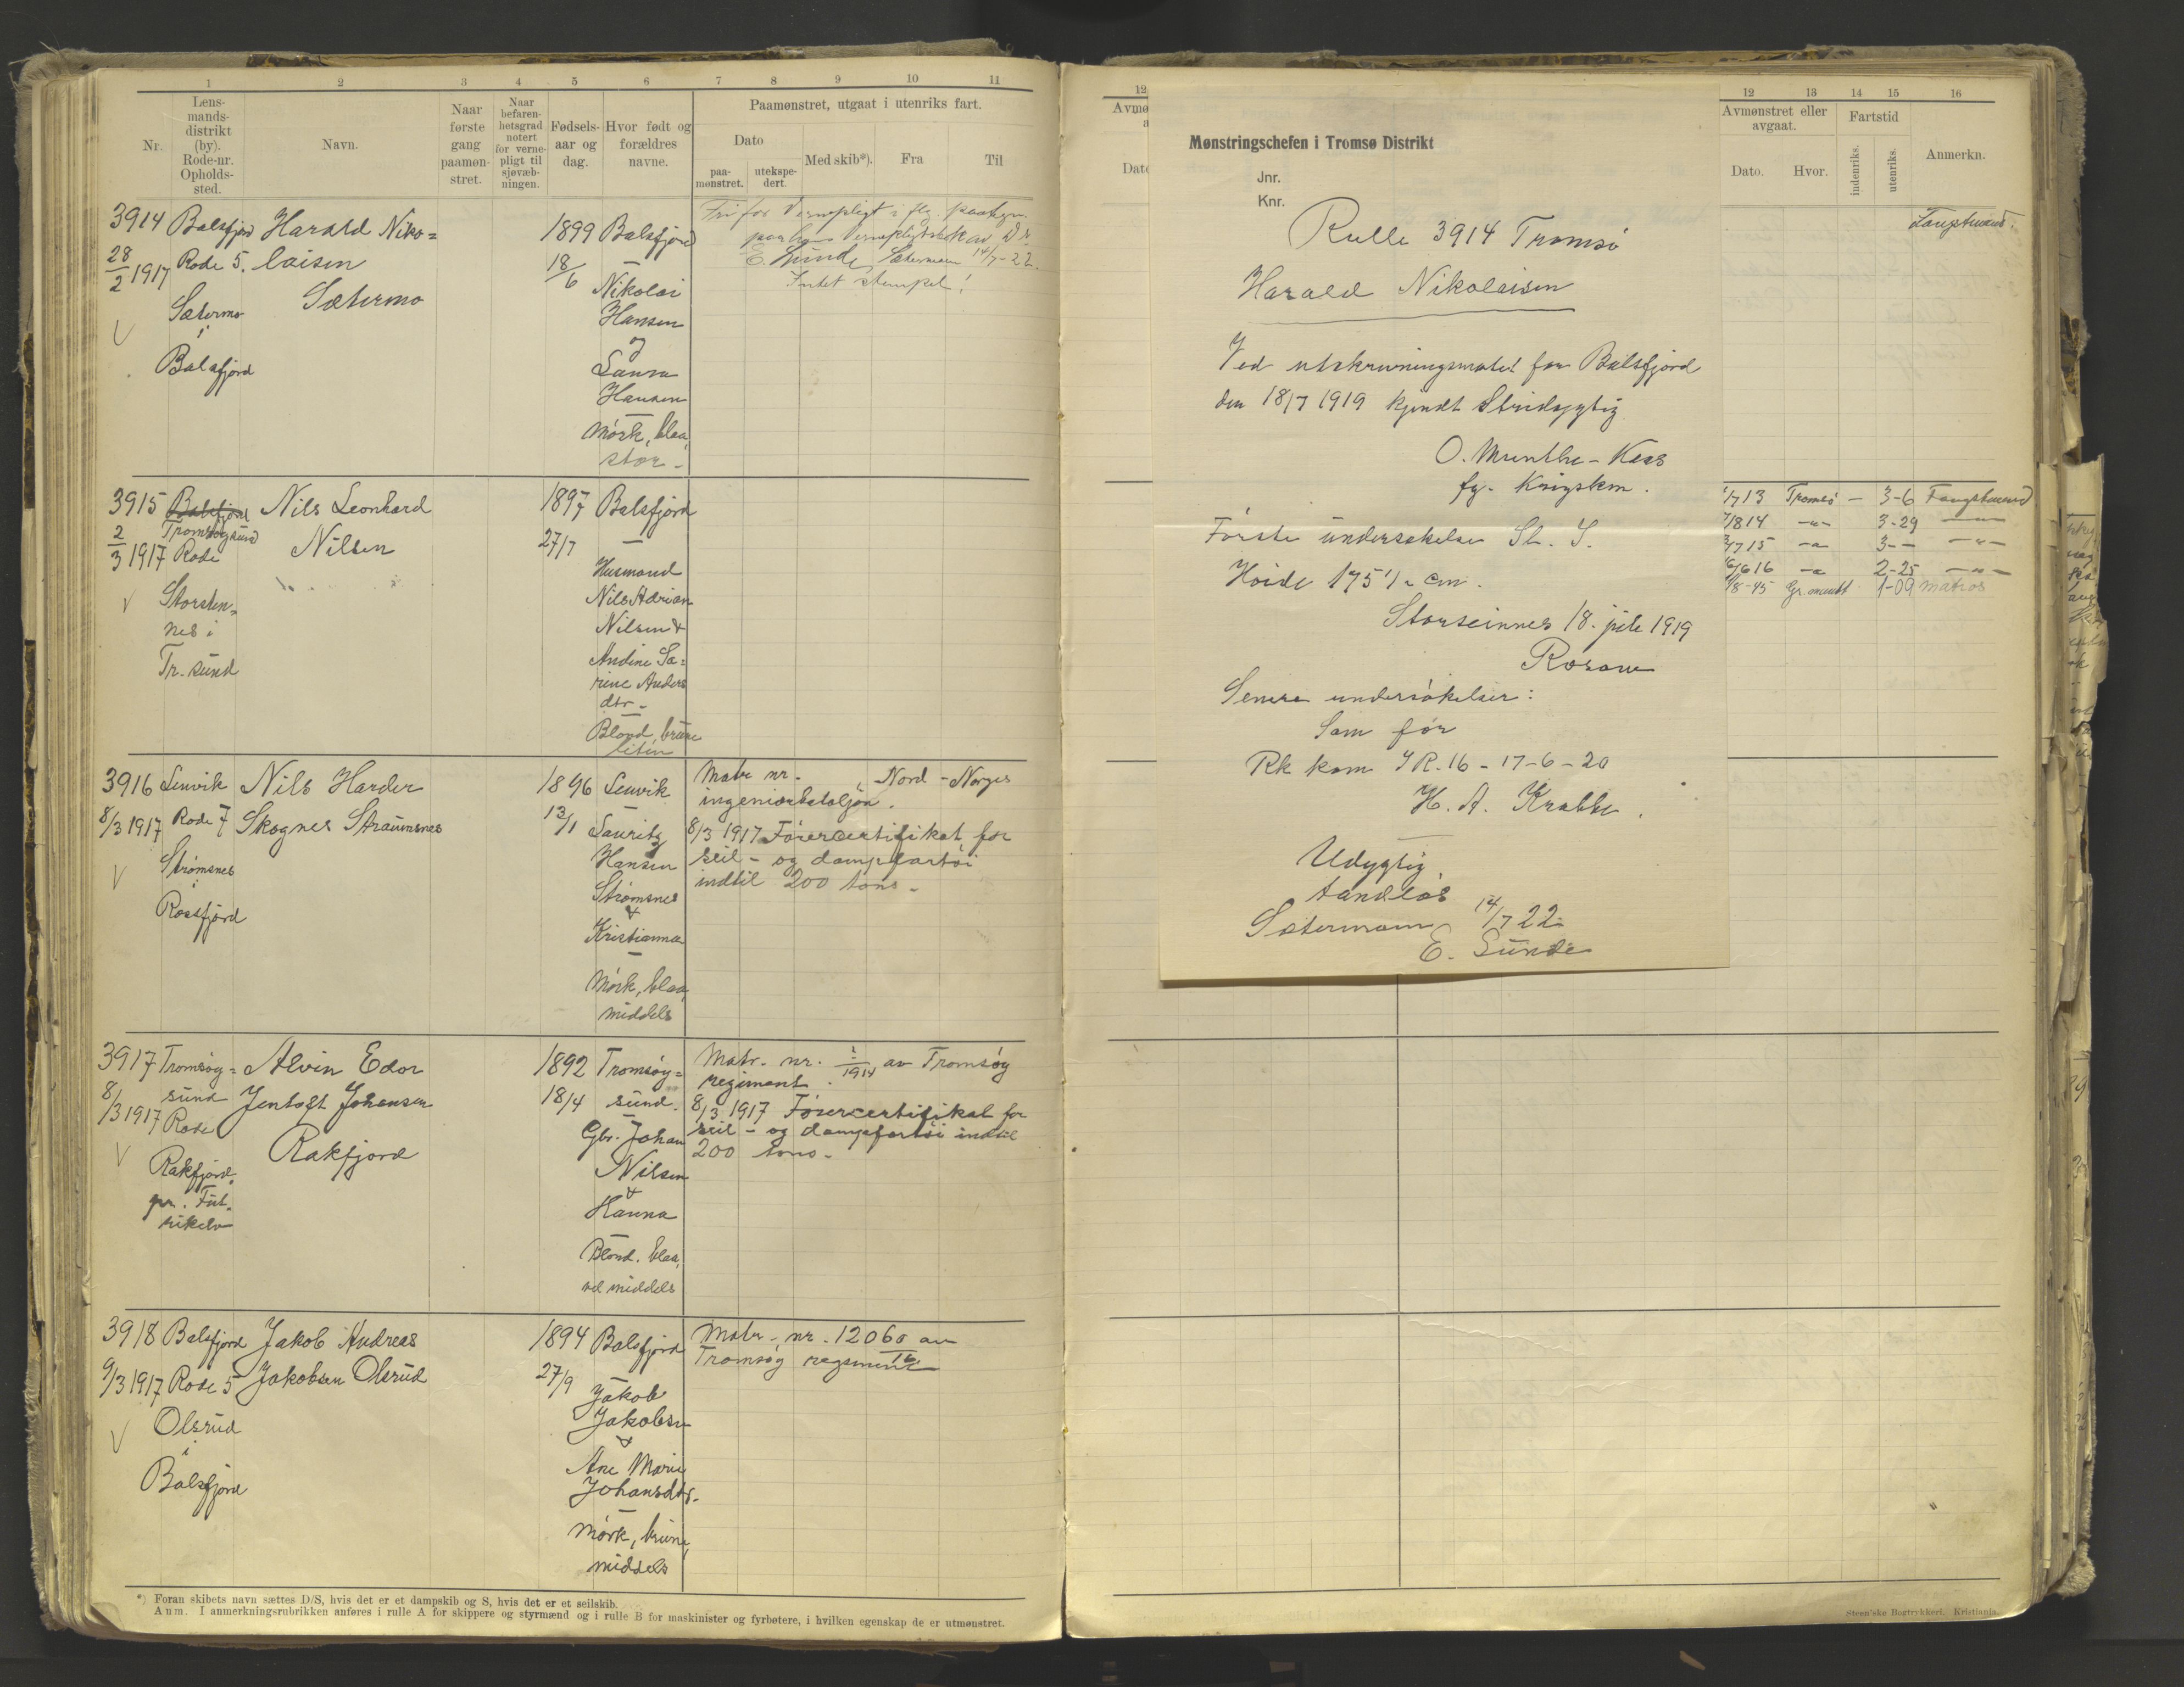 1 2 3 4 5 6 7 8 9 10 11
Nr.
Lens-
mands-
distrikt
(by).
Rode-nr.
Opholds-
sted.
Navn.
Naar
første
gang
paamøn-
stret.
Naar
befaren-
hetsgrad
notert
for verne-
pligt til
sjøvæb-
ningen.
Fødsels-
aar og
dag.
Hvor født og
forældres
navne.
Paamønstret, utgaat i utenriks fart.
Dato
paa-
mønstret.
utekspe-
dert.
Med skib*).
Fra
Til
3914 Balsfjord Harald Niko=
28/2 1917 Rode 5. laisen
Sætermo Sætermo
i
Balsfjord
1899 Balsfjord
18/6
Nikolai
Hansen
og
Laura
Hansen
Mørk, blaa,
stor -
Fri for Vernepligt i flg. paategn.
paa hans Vernepligtsbok av Dr
E. Sunde, Sætermoen 14/7-22.
Intet stempel!
3915 Balsfjord Nils Leonhard
2/3 1917 Tromsøysund Nilsen
Rode
Storsten=
nes i
Tr. sund
1897 Balsfjord
27/7
Husmand
Nils Adrian
Nilsen &
Andine Sa=
rine Anders
dtr -
Blond, brune
liten
3916 Lenvik Nils Harder
8/3 1917 Rode 7 Skognes Straumsnes
Strømsnes
i
Rossfjord
1896 Lenvik
13/1
Lauritz
Hansen
Strømsnes
&
Kristianna
Mørk, blaa,
middels
Matr nr. - , Nord - Norges
ingeniørbataljon.
8/3 1917 Førercertifikat for
seil - og dampfartøi
indtil 200 tons -
3917 Tromsøy= Alvin Edor
8/3 1917 sund Jentoft Johansen
Rode Rakfjord
Rakfjord,
pr. Fut=
rikelv
1892 Tromsøy=
18/4 sund.
Gbr. Johan
Nilsen
&
Hanna
Blond. blaa,
vel middels
Matr. nr. 1/1914 av Tromsøy
regiment.
8/3 1917 Førercertifikat for
seil - og dampfartøi indtil
200 tons -
3918 Balsfjord Jakob Andreas
9/3 1917 Rode 5 Jakobsen Olsrud
Olsrud
i
Balsfjord
1894 Balsfjord
27/9
Jakob
Jakobsen
&
Ane Marie
Johansdtr.
Mørk, brune,
middels
Matr - nr. 12060 av
Tromsøy regiment 16
*) Foran skibets navn sættes D/S, hvis det er et dampskib og S, hvis det er et seilskib.
Anm. I anmerkningsrubrikken anføres i rulle A for skippere og styrmænd og i rulle B for maskinister og fyrbøtere, i hvilken egenskap de er utmønstret.
12
Avmø
a
Dato
Mønstringschefen i Tromsø Distrikt
Jnr.
Knr.
Rulle 3914 Tromsø
Harald Nikolaisen
Ved utskrivningsmøtet for Balsfjord
den 18/7 1919 kjendt Stridsdygtig
O. Munthe - Kaas
fg. Krigskom.
Første undersøkelse St. S.
Høide 175 1/2 cm.
Storsteinnes 18. juli 1919
Senere undersøkelser:
Som før
Rk kom I R. 16 - 17-6-20
H. A. Krabbe.
Udygtig
tandløs
Sætermoen 14/7 22
E. Sunde
12 13 14 15 16
Avmønstret eller
avgaat.
Fartstid
Dato.
Hvor.
indenriks.
utenriks.
Anmerkn.
Fangstmand.
/7 13 Tromsø - 3-6 Fangstmand
/8 14 -"- 3-29 -"-
/7 15 -"- 3-- -"-
/6 16 -"- 2-25 -"-
/8-45 1-09 Matros
Steen'ske Bogtrykkeri. Kristiania.